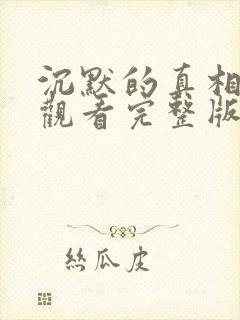 沉默的真相
觀看完整版
絲瓜皮